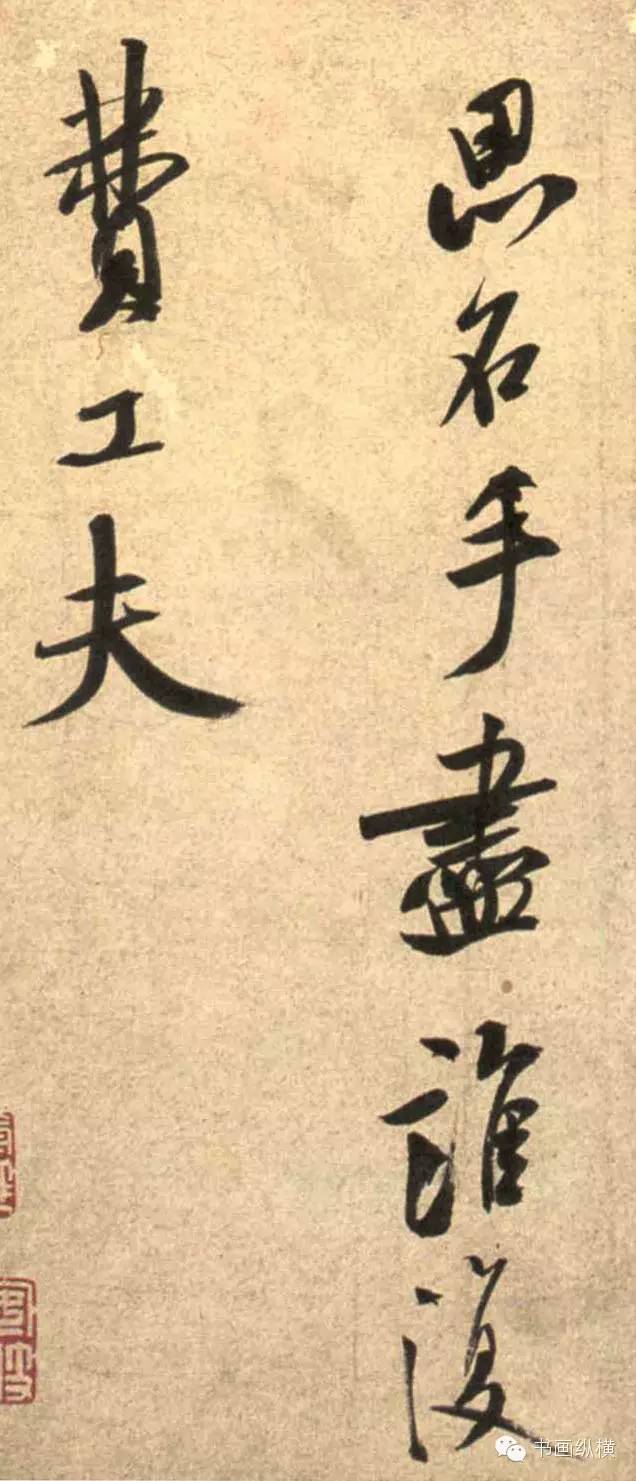 思名手盡誰復
費工夫
书画纵横